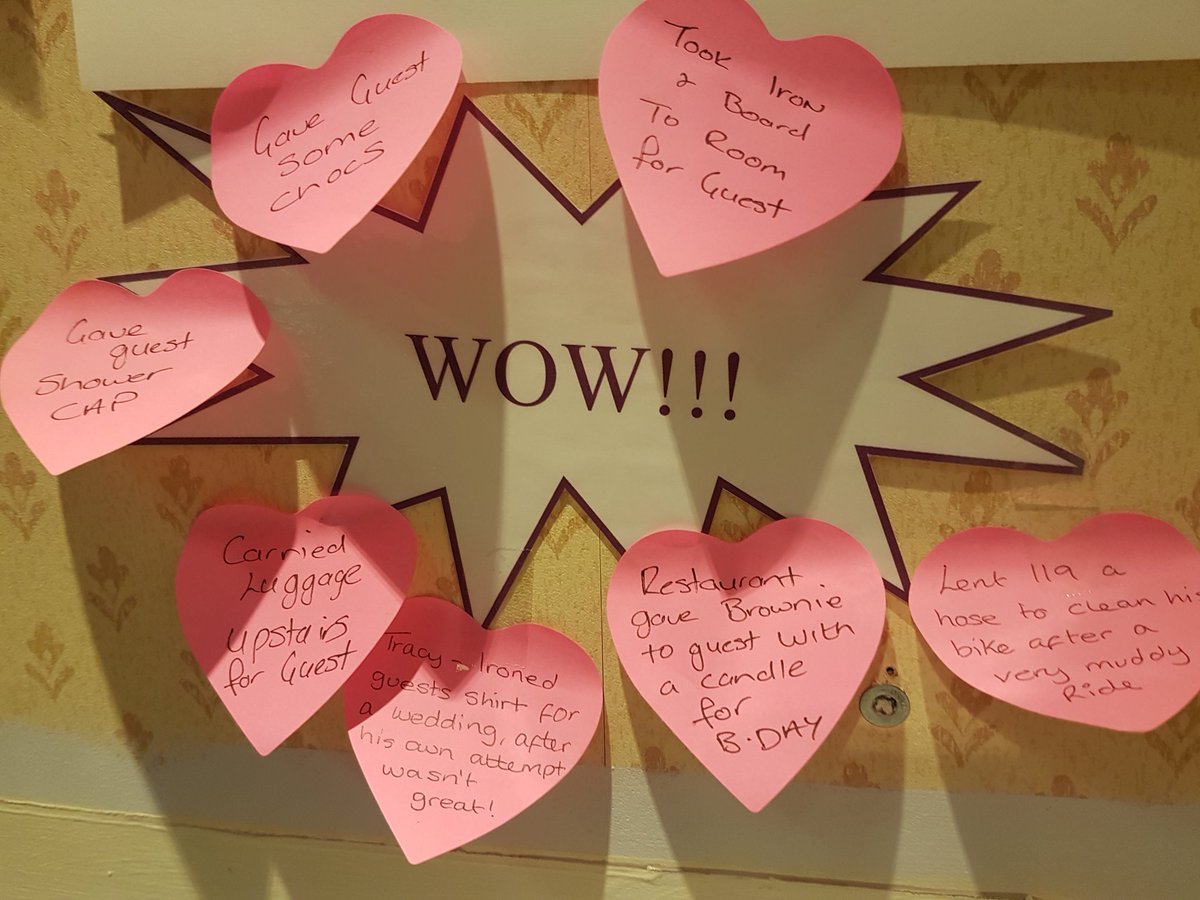 Gave Guest
some
crocs
Took Iron
& Board
To Room
for Guest
Gave
guest
Shower
CAP
WOW!!!
Carried
Luggage
upstairs
for Guest
Tracy - Ironed
guests shirt for
a wedding, after
his own attempt
wasn't
great!
Restaurant.
gave Brownie
to guest with
a candle
for
B.DAY
Lent 119 a
hose to clean his
bike after a
very muddy
Ride